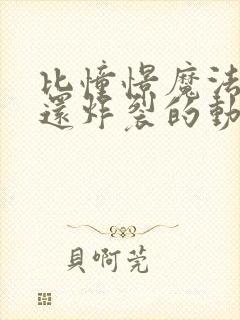 比憧憬魔法
還炸裂的動
貝啊莞